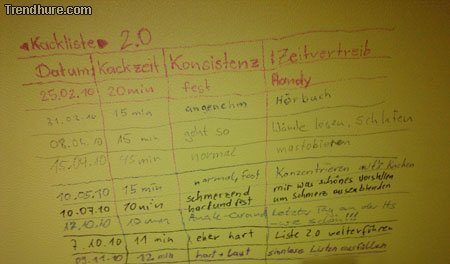 Trendhure.com
"Kackliste" 2.0
Datum Kackzeit Konsistenz Zeitvertreib
25.02.10 20 min fest Handy
15 min angenehm Hörbuch
08.04.10 15 min geht so Wände lesen, Schlafen
15.04.10 45 min normal mastobieren
10.05.10 15 min normal, fest Konzentrieren aufs Kacken
10.07.10 10 min schmerzend hart und fest mir was schönes vorstellen um Schmerz auszublenden
17.10.10 letzter Tag an der
7.10.10 11 min eher hart Liste 2.0 weiterführen
12 min hart + laut sinnlose Listen ausfüllen